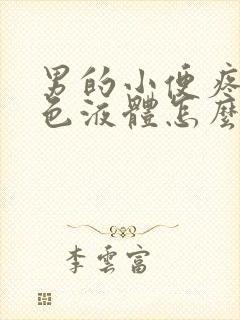 男的小便疼
色液體怎麼
李雲富